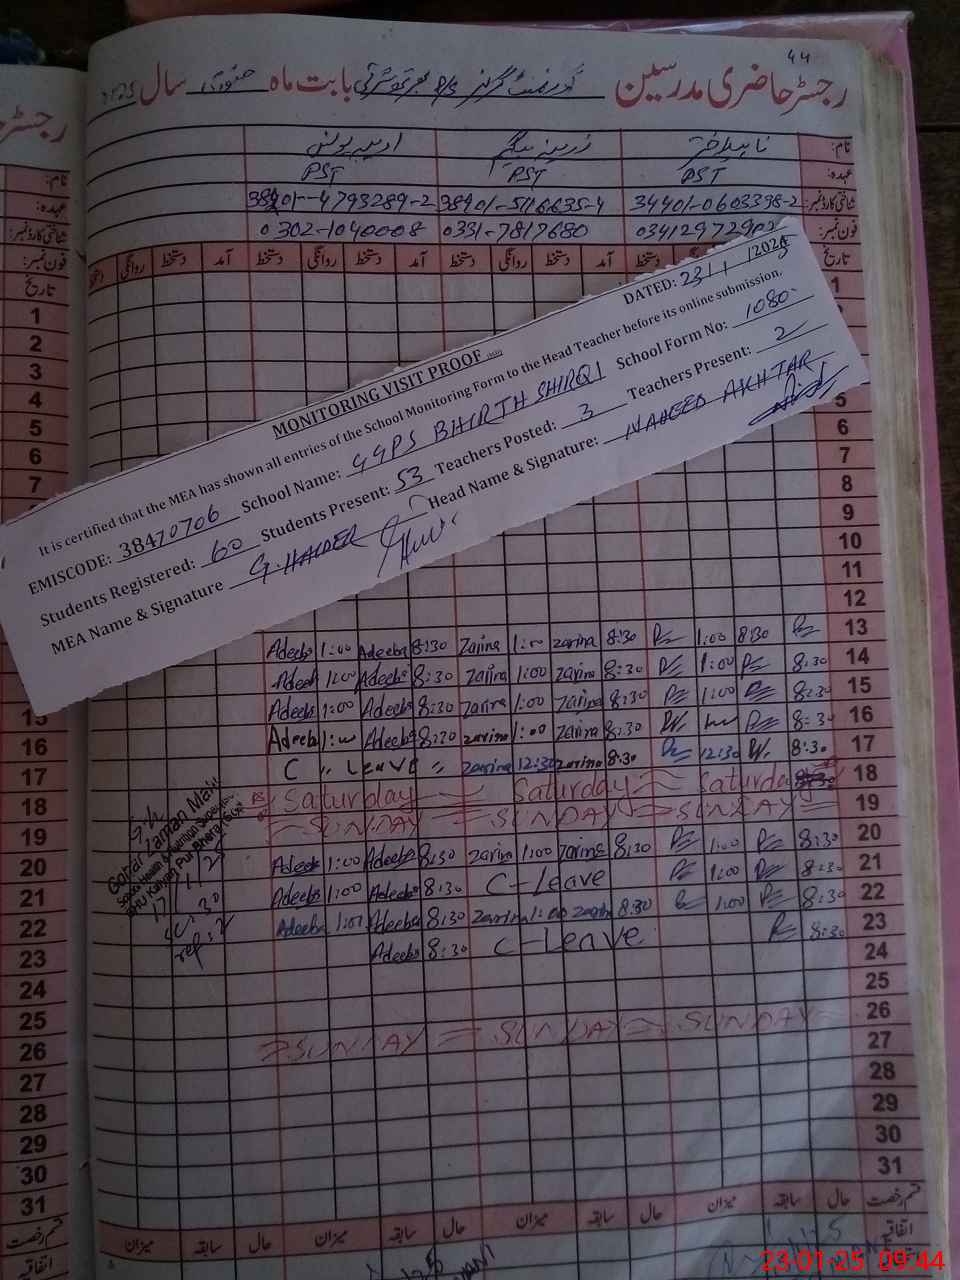 44
رجسٹر حاضری مدرسین گورنمنٹ گرلز P/S بھرتھ شرقی بابت ماہ جنوری سال 2025
نام: ناہید اختر زرینہ بیگم ادیبہ یونس
عہدہ: PST PST PST
شناختی کارڈ نمبر: 34401-0603398-2 38401-5116635-4 38401-4793289-2
فون نمبر: 0331-7817680 0302-1040008
تاریخ آمد دستخط روانگی دستخط آمد دستخط روانگی دستخط آمد دستخط روانگی دستخط
MONITORING VISIT PROOF
DATED: 23/1/2025
It is certified that the MEA has shown all entries of the School Monitoring Form to the Head Teacher before its online submission.
EMISCODE: 38470706 School Name: GGPS BHIRTH SHIRQI School Form No: 1080
Students Registered: 60 Students Present: 53 Teachers Posted: 3 Teachers Present: 2
MEA Name & Signature G. HAIDER Head Name & Signature: NAHEED AKHTAR
1
5
6
7
8
9
10
11
12
Adeeba 1:00 Adeeba 8:30 Zarina 1:00 zarina 8:30 1:00 8:30 13
Adeeba 1:00 Adeeba 8:30 Zarina 1:00 zarina 8:30 1:00 8:30 14
Adeeba 1:00 Adeeba 8:30 zarina 1:00 zarina 8:30 1:00 8:30 15
Adeeba Adeeba 8:30 zarina 1:00 zarina 8:30 8:30 16
C Leave Zarina 12:30 zarina 8:30 12:30 8:30 17
Saturday Saturday Saturday 18
SUNDAY SUNDAY SUNDAY 19
Adeeba 1:00 Adeeba 8:30 zarina 1:00 zarina 8:30 1:00 8:30 20
Adeeba 1:00 Adeeba 8:30 C-Leave 1:00 8:30 21
Adeeba 1:00 Adeeba 8:30 Zarina 1:00 Zarina 8:30 1:00 8:30 22
Adeeba 8:30 C-Leave 8:30 23
24
25
SUNDAY SUNDAY SUNDAY 26
27
28
29
30
31
قسم رخصت حال سابقہ میزان حال سابقہ میزان حال سابقہ میزان
اتفاقیہ
Gohar Zaman Malik
School Health & Nutrition Supervisor
BHU Kalyan Pur Bhera, SGD
17/1/25
رجسٹر
نام:
عہدہ:
شناختی کارڈ نمبر:
فون نمبر:
تاریخ
1
2
3
4
5
6
7
15
16
17
18
19
20
21
22
23
24
25
26
27
28
29
30
31
قسم رخصت
اتفاقیہ
23-01-25 09:44